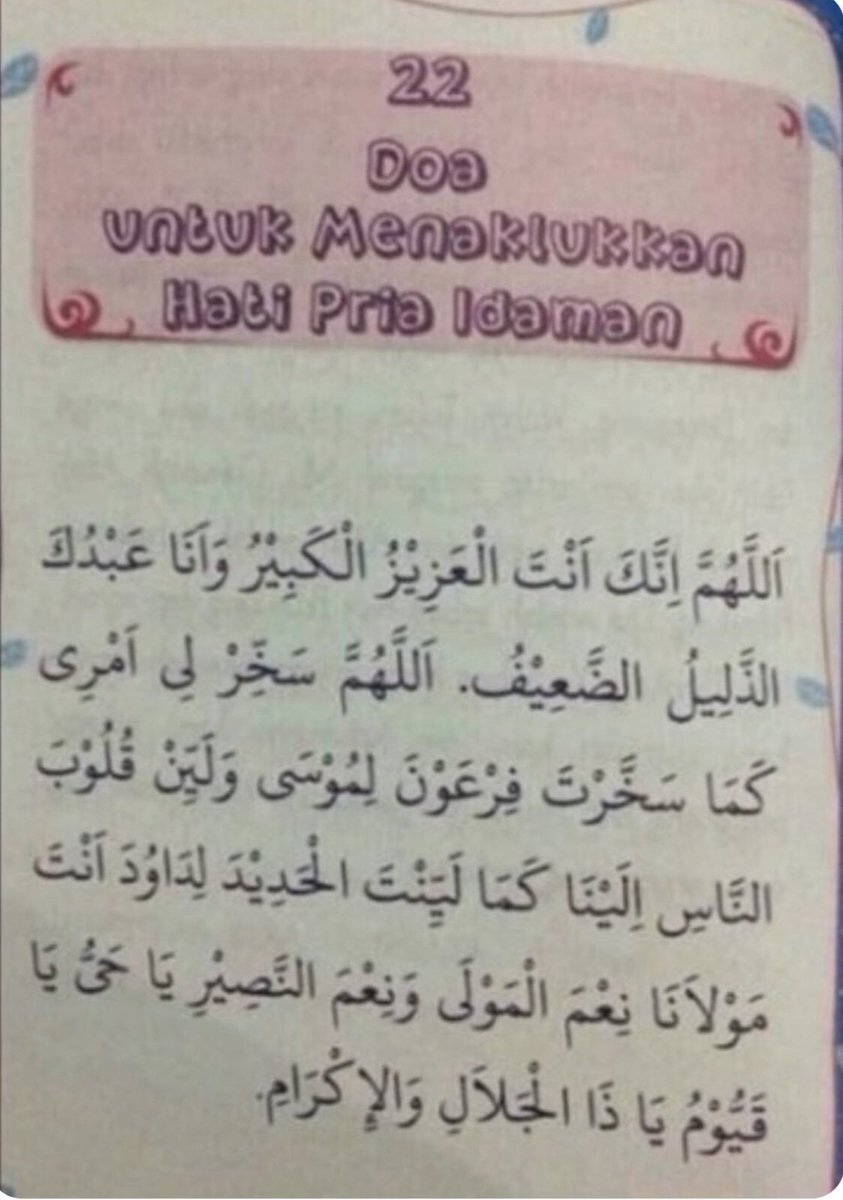 22
Doa
untuk Menaklukkan
Hati Pria Idaman
اَللَّهُمَّ اِنَّكَ اَنْتَ الْعَزِيْزُ الْكَبِيْرُ وَاَنَا عَبْدُكَ
الذَّلِيلُ الضَّعِيْفُ. اَللَّهُمَّ سَخِّرْ لِى اَمْرِى
كَمَا سَخَّرْتَ فِرْعَوْنَ لِمُوْسَى وَلَيِّنْ قُلُوْبَ
النَّاسِ اِلَيْنَا كَمَا لَيَّنْتَ الْحَدِيْدَ لِدَاوُدَ اَنْتَ
مَوْلاَنَا نِعْمَ الْمَوْلَى وَنِعْمَ النَّصِيْرِ يَا حَىُّ يَا
قَيُّوْمُ يَا ذَا الْجَلاَلِ وَالْاِكْرَامِ.